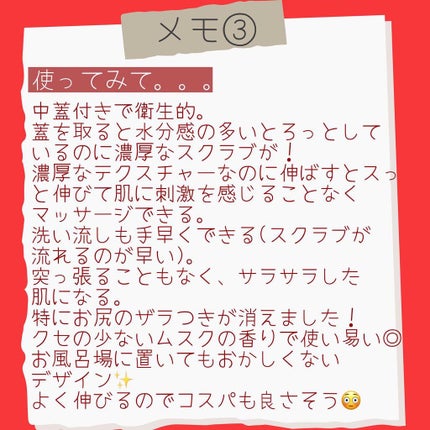 メモ③
使ってみて。。。
中蓋付きで衛生的。
蓋を取ると水分感の多いとろっとして
いるのに濃厚なスクラブが！
濃厚なテクスチャーなのに伸ばすとスっ
と伸びて肌に刺激を感じることなく
マッサージできる。
洗い流しも手早くできる(スクラブが
流れるのが早い)。
突っ張ることもなく、サラサラした
肌になる。
特にお尻のザラつきが消えました！
クセの少ないムスクの香りで使い易い◎
お風呂場に置いてもおかしくない
デザイン✨
よく伸びるのでコスパも良さそう😳